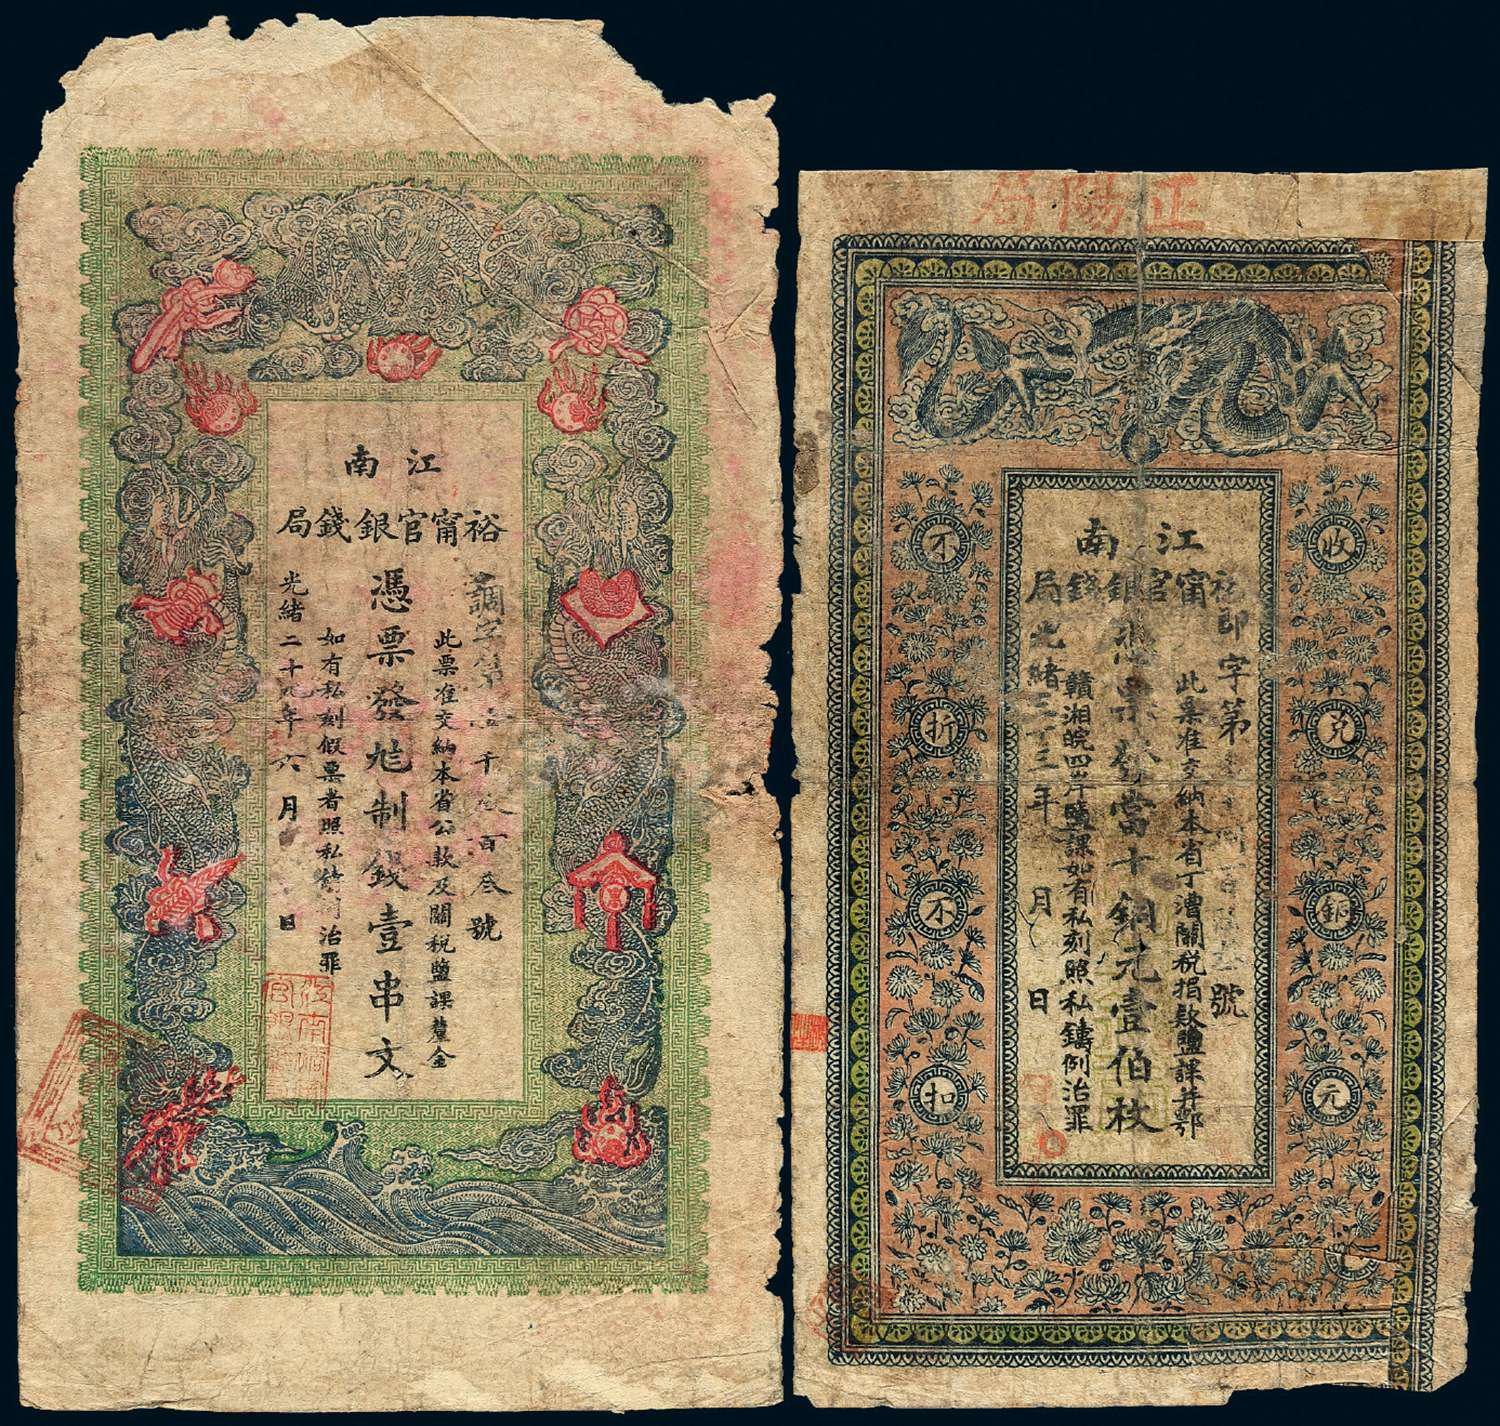 江南
裕甯官銀錢局
字第
千
百叁號
此票准交納本省公款及關稅鹽課釐金
憑票發足制錢壹串文
如有私刻假票者照私
治罪
光緒二十九年六月
日
正陽局
江南
裕甯官銀錢局
即字第
號
此票准交納本省丁漕關稅捐款鹽課并鄂
憑票發當十銅元壹伯枚
贛湘皖四岸鹽課如有私刻照私鑄例治罪
光緒三十三年
月
日
收兌銅元
不折不扣